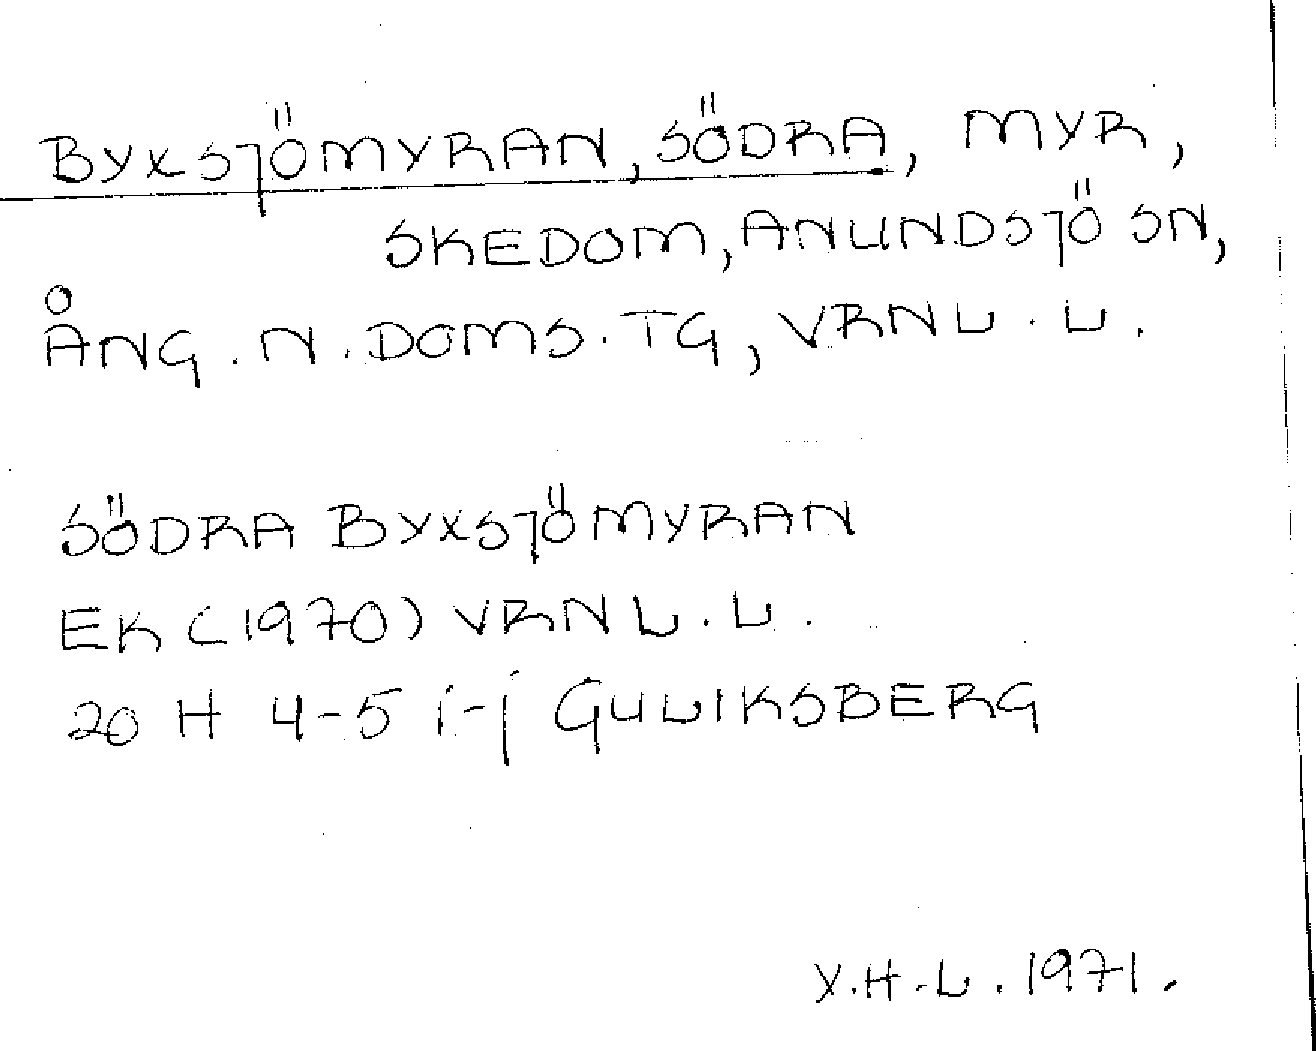 BYXSJÖMYRAN, SÖDRA, MYR,
SKEDOM, ANUNDSJÖ SN,
ÅNG. N. DOMS. TG, VRNL. L.
SÖDRA BYXSJÖMYRAN
EK (1970) VRNL. L.
20 H 4-5 i-j GULIKSBERG
Y.H.L. 1971.